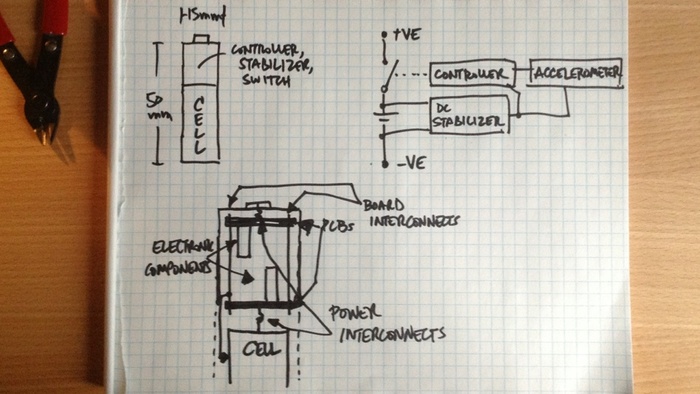 ~15mm
CONTROLLER,
STABILIZER,
SWITCH
50
mm
CELL
+VE
CONTROLLER
ACCELEROMETER
DC
STABILIZER
-VE
BOARD
INTERCONNECTS
PCBs
ELECTRONIC
COMPONENTS
POWER
INTERCONNECTS
CELL